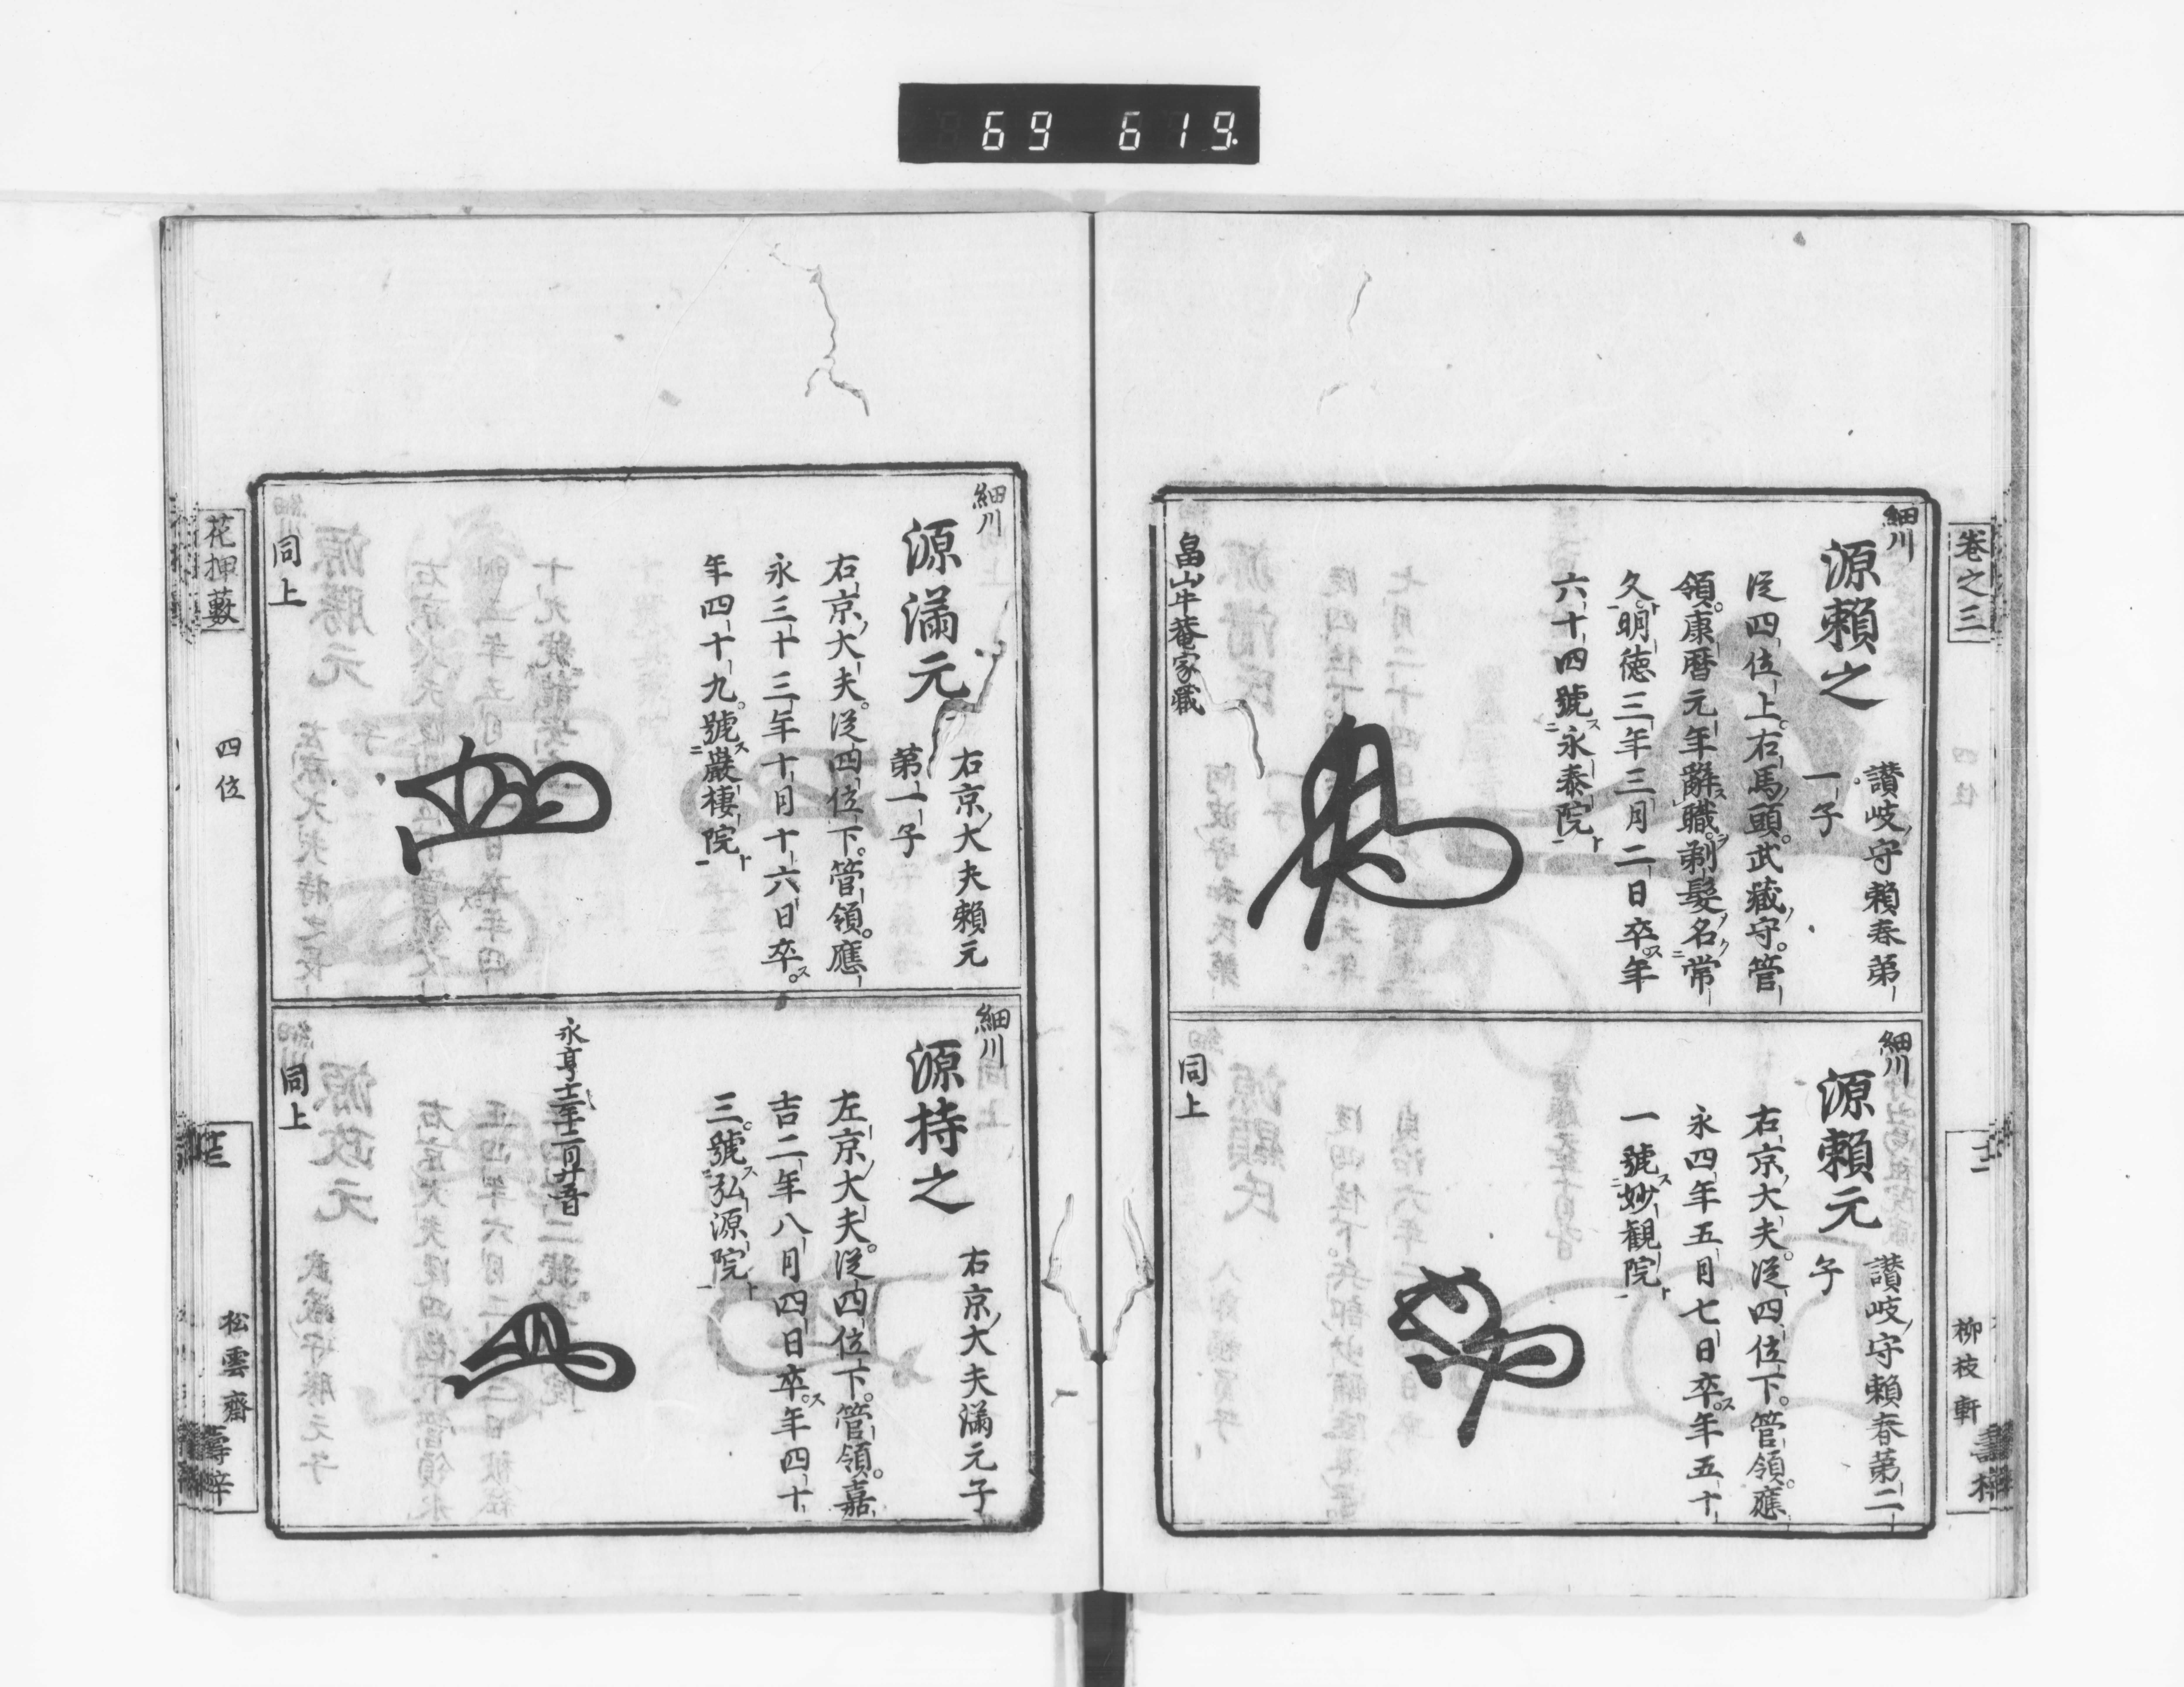 69 619.
巻之三
四位
十二
柳枝軒
細川
源賴之
讃岐守賴春第
一子
従四位上。右馬頭。武藏守。管
領。康暦元年辭職。剃髮名常
久。明徳三年三月二日卒。年
六十四號永泰院
畠山牛菴家藏
細川
源賴元
讃岐守賴春第二
子
右京大夫。従四位下。管領。應
永四年五月七日卒。年五十
一號妙觀院
同上
細川
源滿元
右京大夫賴元
第一子
右京大夫。従四位下。管領。應
永三十三年十月十六日卒。
年四十九。號巖棲院
同上
細川
源持之
右京大夫滿元子
左京大夫。従四位下。管領。嘉
吉二年八月四日卒。年四十
三。號弘源院
同上
花押藪
四位
松雲齋